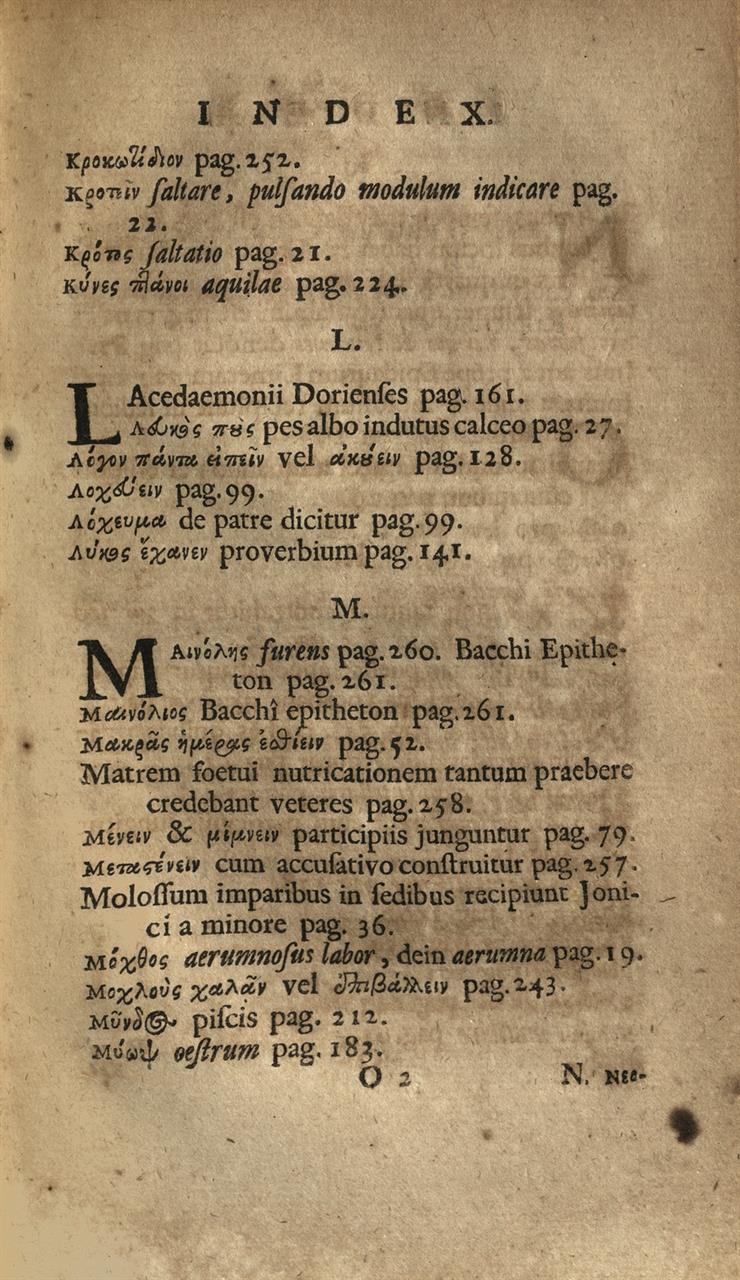 I N D E X.
Κροκωτίδιον pag. 252.
Κροτεῖν ſaltare, pulſando modulum indicare pag.
22.
Κρότος ſaltatio pag. 21.
Κύνες πτάνοι aquilae pag. 224.
L.
LAcedaemonii Dorienſes pag. 161.
Λευκὸς πους pes albo indutus calceo pag. 27.
Λόγον πάντα εἰπεῖν vel ἀκούειν pag. 128.
Λοχεύειν pag. 99.
Λόχευμα de patre dicitur pag. 99.
Λύκος ἔχανεν proverbium pag. 141.
M.
ΜΑινόλης furens pag. 260. Bacchi Epithe-
ton pag. 261.
Μαινόλιος Bacchî epitheton pag. 261.
Μακρᾶς ἡμέρας ἐσθίειν pag. 52.
Matrem foetui nutricationem tantum praebere
credebant veteres pag. 258.
Μένειν & μίμνειν participiis junguntur pag. 79.
Μεταστένειν cum accuſativo conſtruitur pag. 257.
Moloſſum imparibus in ſedibus recipiunt Joni-
ci a minore pag. 36.
Μόχθος aerumnoſus labor, dein aerumna pag. 19.
Μοχλοὺς χαλᾶν vel ἐπιβάλλειν pag. 243.
Μῦνδος piſcis pag. 212.
Μύωψ oeſtrum pag. 183.
O 2 N. Νεε-